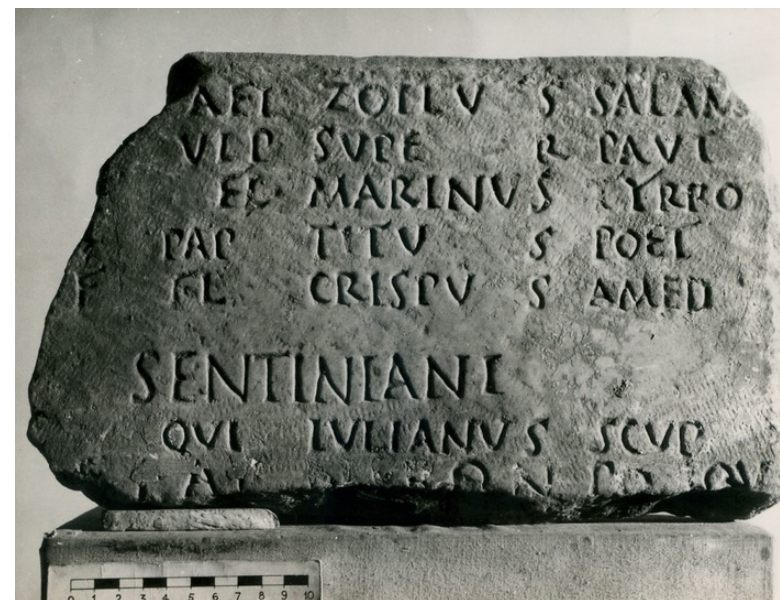 AEL ZOILV S SALAM
VLP SVPE R PAVT
FL MARINVS TYRRO
PAP TITV S POET
FL CRISPV S AMED
SENTINIANI
QVI IVLIANVS SCVP
0 1 2 3 4 5 6 7 8 9 10